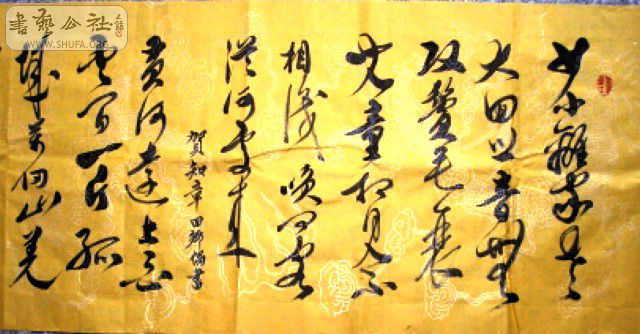 書藝公社
WWW.SHUFA.ORG
少小離家老
大回乡音無
改鬓毛衰
兒童相見不
相識咲问客
從何處来
賀知章回鄉偶書
黄河遠上白
雲间一片孤
城萬仞山羌